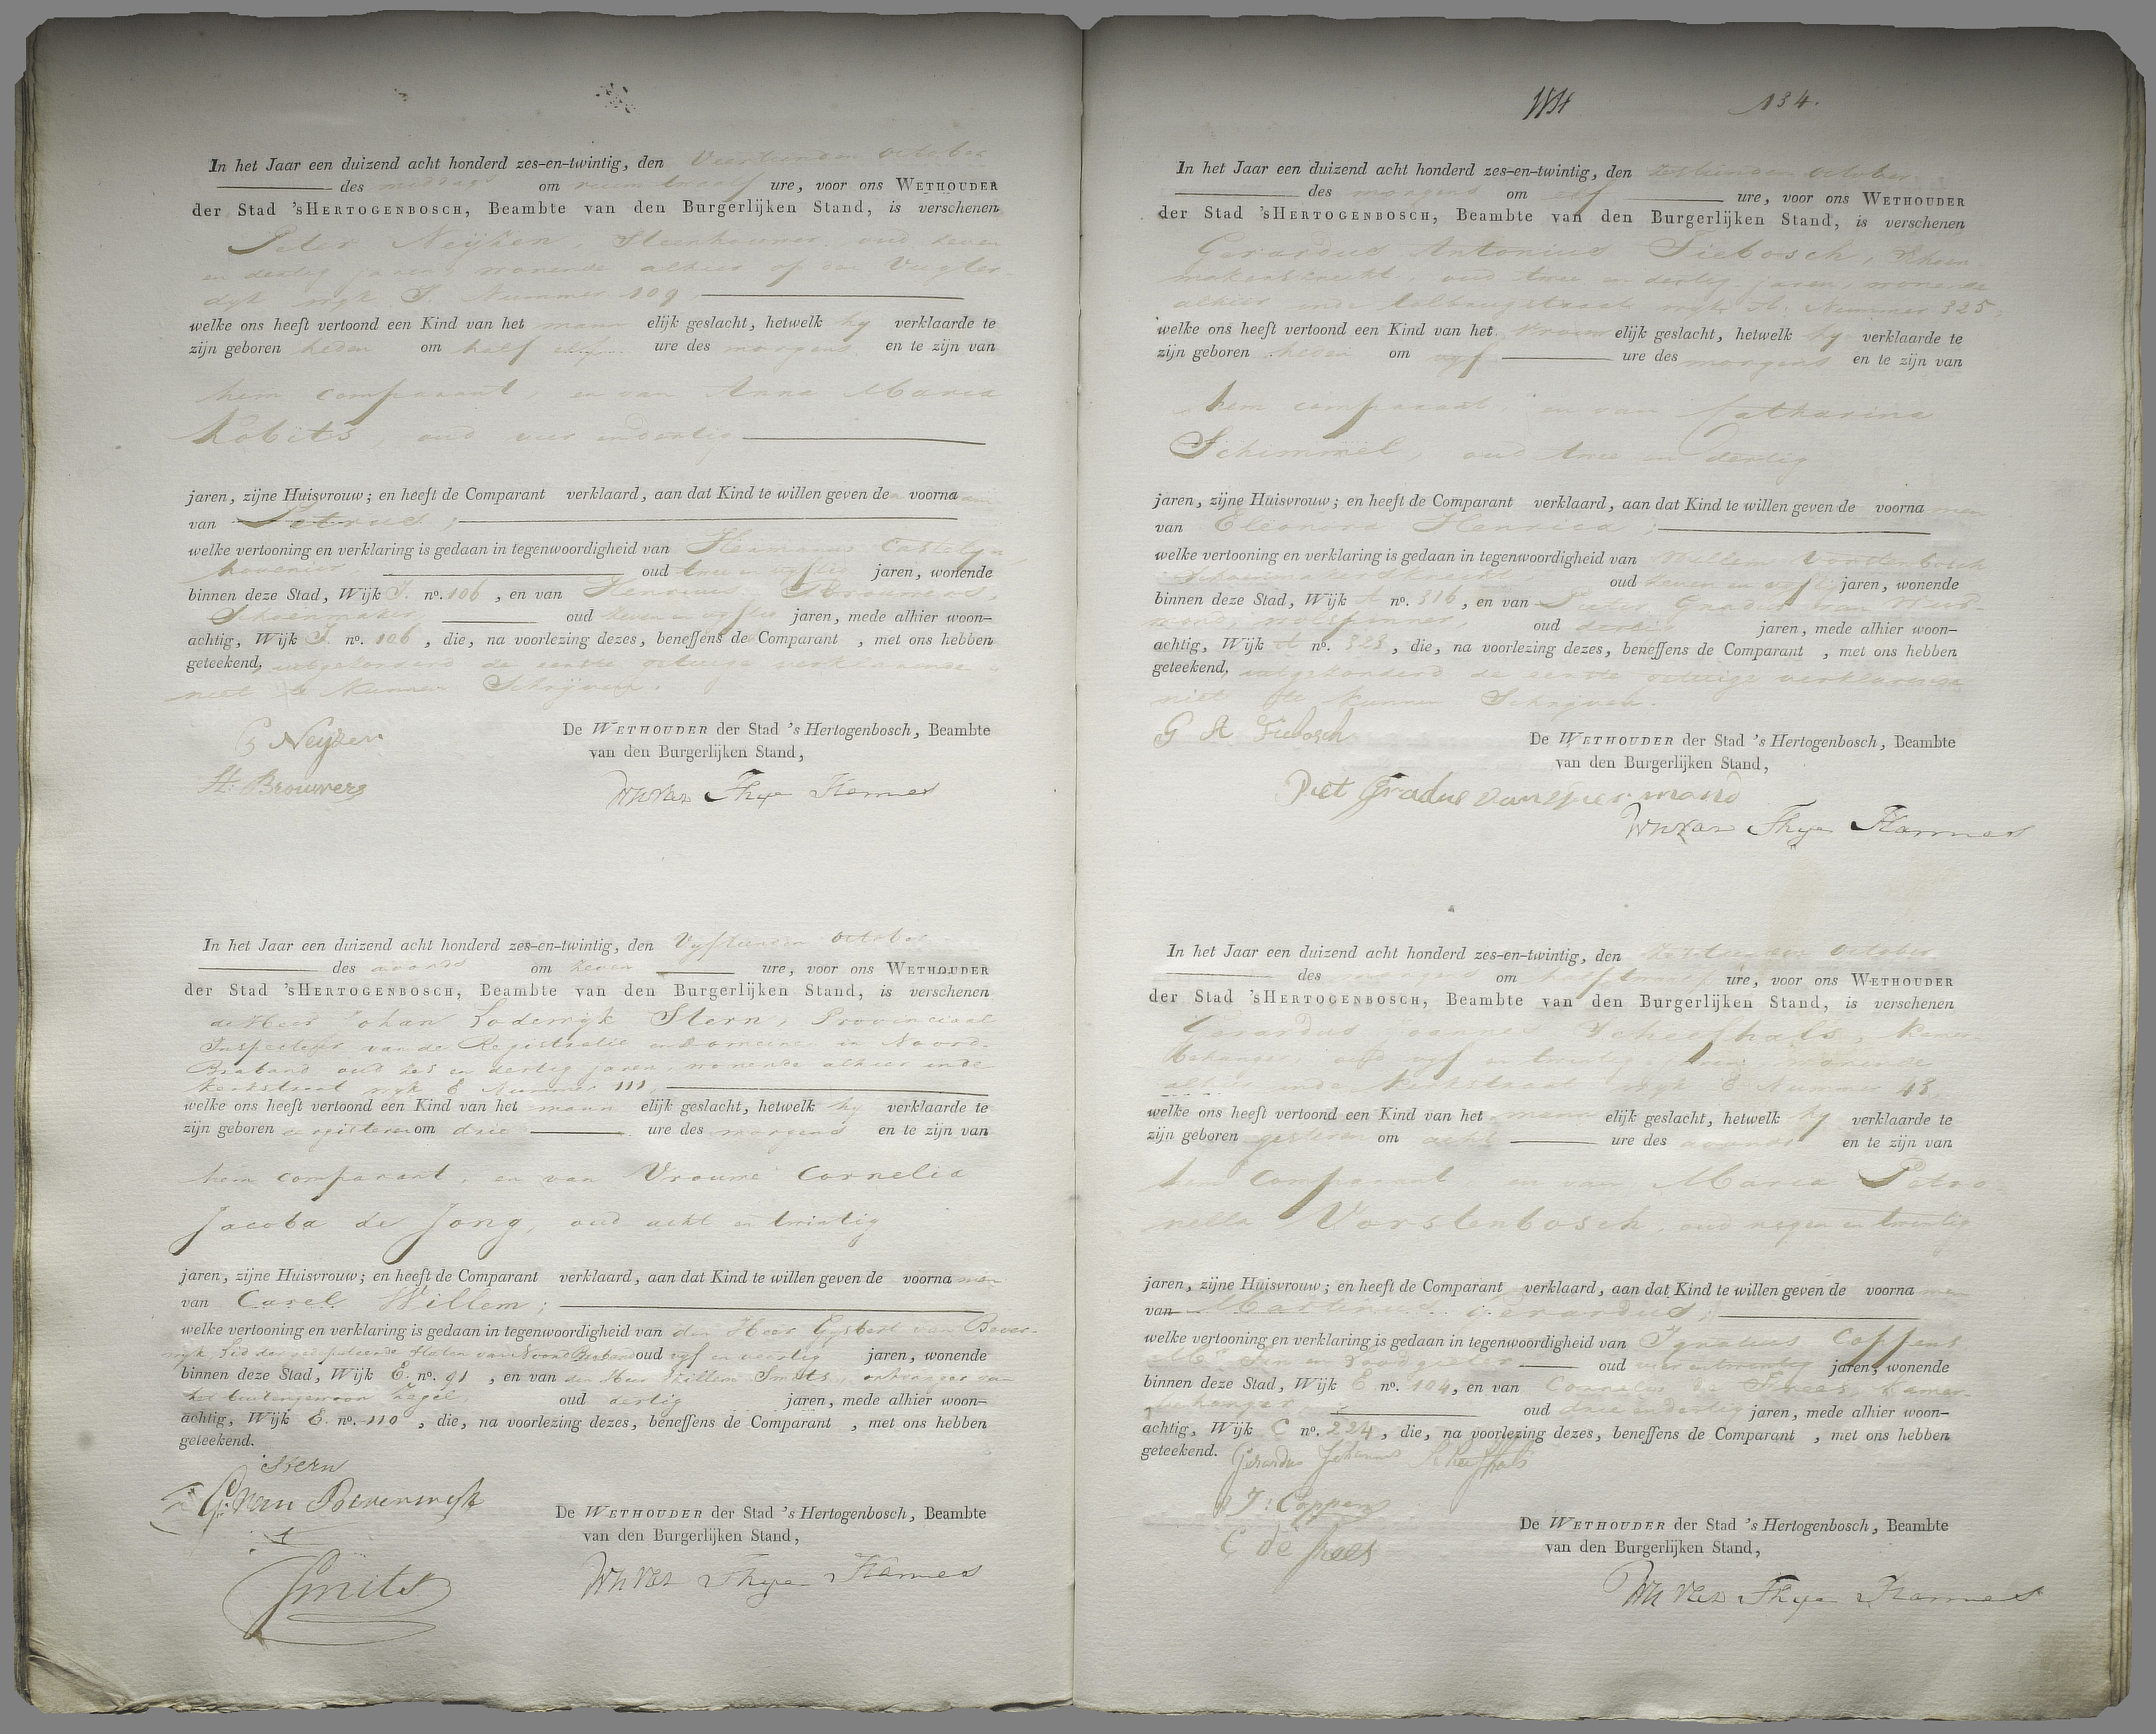 In het Jaar een duizend acht honderd zes-en-twintig, den Veertienden October
des middags om ruim twaalf ure, voor ons WETHOUDER
der Stad 'sHERTOGENBOSCH, Beambte van den Burgerlijken Stand, is verschenen
Peter Neijzen, Steenhouwer, oud zeven
en dertig jaren, wonende alhier op den Vugter-
dyk wyk I. Nummer 109
welke ons heeft vertoond een Kind van het mann elijk geslacht, hetwelk hy verklaarde te
zijn geboren heden om half elf ure des morgens en te zijn van
hem comparant, en van Anna Maria
Kobits, oud vier en dertig
jaren, zijne Huisvrouw; en heeft de Comparant verklaard, aan dat Kind te willen geven de voorna
van Petrus;
welke vertooning en verklaring is gedaan in tegenwoordigheid van Hermanus Castelyn
hovenier oud twee en vyftig jaren, wonende
binnen deze Stad, Wijk I. no. 106, en van Henricus Brouwers,
Schoenmaker oud zeven en vyftig jaren, mede alhier woon-
achtig, Wijk I. no. 106, die, na voorlezing dezes, beneffens de Comparant, met ons hebben
geteekend, uitgezonderd de eerste getuige verklarende
niet te kunnen Schrijven.
P Neyzen
H. Brouwers
De WETHOUDER der Stad 's Hertogenbosch, Beambte
van den Burgerlijken Stand,
In het Jaar een duizend acht honderd zes-en-twintig, den Vyftienden October
des avonds om zeven ure, voor ons WETHOUDER
der Stad 'sHERTOGENBOSCH, Beambte van den Burgerlijken Stand, is verschenen
de Heer Johan Lodewyk Stern, Provinciaal
Inspecteur van de Registratie en Domeinen in Noord-
Braband oud zes en dertig jaren, wonende alhier in de
Kerkstraat wyk E Nummer 111,
welke ons heeft vertoond een Kind van het mann elijk geslacht, hetwelk hy verklaarde te
zijn geboren eergisteren om drie ure des morgens en te zijn van
hem comparant, en van Vrouwe Cornelia
Jacoba de Jong, oud acht en twintig
jaren, zijne Huisvrouw; en heeft de Comparant verklaard, aan dat Kind te willen geven de voorna men
van Carel Willem;
welke vertooning en verklaring is gedaan in tegenwoordigheid van den Heer Gysbert van Bever-
wyk, Lid der Gedeputeerde Staten van Noord Braband oud vyf en veertig jaren, wonende
binnen deze Stad, Wijk E. no. 91, en van den Heer Willem Smits, ontvanger van
het buitengewoon Zegel oud dertig jaren, mede alhier woon-
achtig, Wijk E. no. 110, die, na voorlezing dezes, beneffens de Comparant, met ons hebben
geteekend.
Stern
G. van Beverwyk
Smits
De WETHOUDER der Stad 's Hertogenbosch, Beambte
van den Burgerlijken Stand,
134.
In het Jaar een duizend acht honderd zes-en-twintig, den zestienden October
des morgens om elf ure, voor ons WETHOUDER
der Stad 'sHERTOGENBOSCH, Beambte van den Burgerlijken Stand, is verschenen
Gerardus Antonius Siebosch, Schoen
makersknecht, oud twee en dertig jaren, wonende
alhier in de Tolbrugstraat wyk A. Nummer 325,
welke ons heeft vertoond een Kind van het vrouw elijk geslacht, hetwelk hy verklaarde te
zijn geboren heden om vyf ure des morgens en te zijn van
hem comparant, en van Catharina
Schimmel, oud twee en dertig
jaren, zijne Huisvrouw; en heeft de Comparant verklaard, aan dat Kind te willen geven de voorna men
van Eleonora Henrica;
welke vertooning en verklaring is gedaan in tegenwoordigheid van Willem Vorstenbosch
Schoenmakersknecht oud zeven en vyftig jaren, wonende
binnen deze Stad, Wijk A no. 316, en van Pieter Gradus van
wolspinner, oud dertig jaren, mede alhier woon-
achtig, Wijk A no. 323, die, na voorlezing dezes, beneffens de Comparant, met ons hebben
geteekend, uitgezonderd de eerste getuige verklarende
niet te kunnen Schrijven.
G A Siebosch
Piet Gradus van
De WETHOUDER der Stad 's Hertogenbosch, Beambte
van den Burgerlijken Stand,
In het Jaar een duizend acht honderd zes-en-twintig, den zestienden October
des morgens om half twaalf ure, voor ons WETHOUDER
der Stad 'sHERTOGENBOSCH, Beambte van den Burgerlijken Stand, is verschenen
Gerardus Joannes Scheefhals, Kamer
behanger, oud vyf en twintig jaren, wonende
alhier in de Kerkstraat wyk E Nummer 48,
welke ons heeft vertoond een Kind van het mann elijk geslacht, hetwelk hy verklaarde te
zijn geboren gisteren om acht ure des avonds en te zijn van
hem Comparant, en van Maria Petro
nella Vorstenbosch, oud negen en twintig
jaren, zijne Huisvrouw; en heeft de Comparant verklaard, aan dat Kind te willen geven de voorna men
van Martinus Gerardus;
welke vertooning en verklaring is gedaan in tegenwoordigheid van Ignatius Coppens
Tin en Loodgieter oud vier en twintig jaren, wonende
binnen deze Stad, Wijk E no. 104, en van Cornelis de Frees, Kamer-
behanger oud drie en dertig jaren, mede alhier woon-
achtig, Wijk C no. 224, die, na voorlezing dezes, beneffens de Comparant, met ons hebben
geteekend. Gerardus Johannes Scheefhals
J: Coppens
C de frees
De WETHOUDER der Stad 's Hertogenbosch, Beambte
van den Burgerlijken Stand,